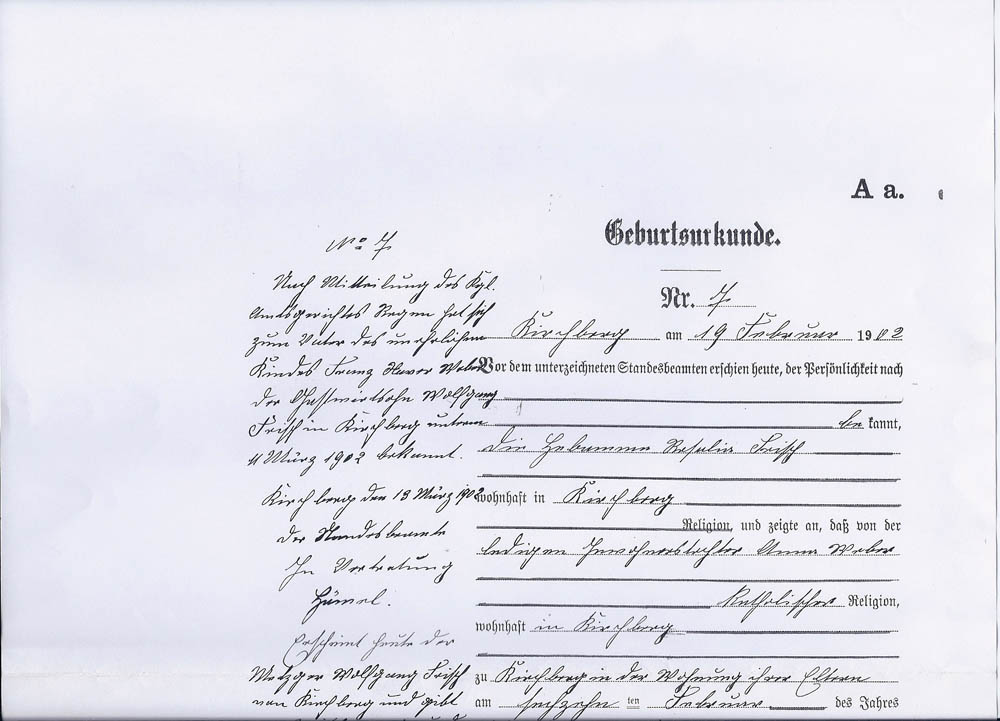 A a.
Geburtsurkunde.
Nr. 7
Kirchberg am 19 Februar 1902
Vor dem unterzeichneten Standesbeamten erschien heute, der Persönlichkeit nach
bekannt,
die Hebamme Rosalia Frisch
wohnhaft in Kirchberg
Religion, und zeigte an, daß von der
ledigen Inwohnerstochter Anna Weber
katholischer Religion,
wohnhaft in Kirchberg
zu Kirchberg in der Wohnung ihrer Eltern
am sechzehn ten Februar des Jahres
No 7
Nach Mitteilung des Kgl.
Amtsgerichtes Regen hat sich
zum Vater des unehelichen
Kindes Franz Xaver Weber
der Gastwirtsohn Wolfgang
Frisch in Kirchberg unterm
11 März 1902 bekannt.
Kirchberg den 13 März 1902
Der Standesbeamte
In Vertretung
Erscheint heute der
Metzger Wolfgang Frisch
von Kirchberg und gibt